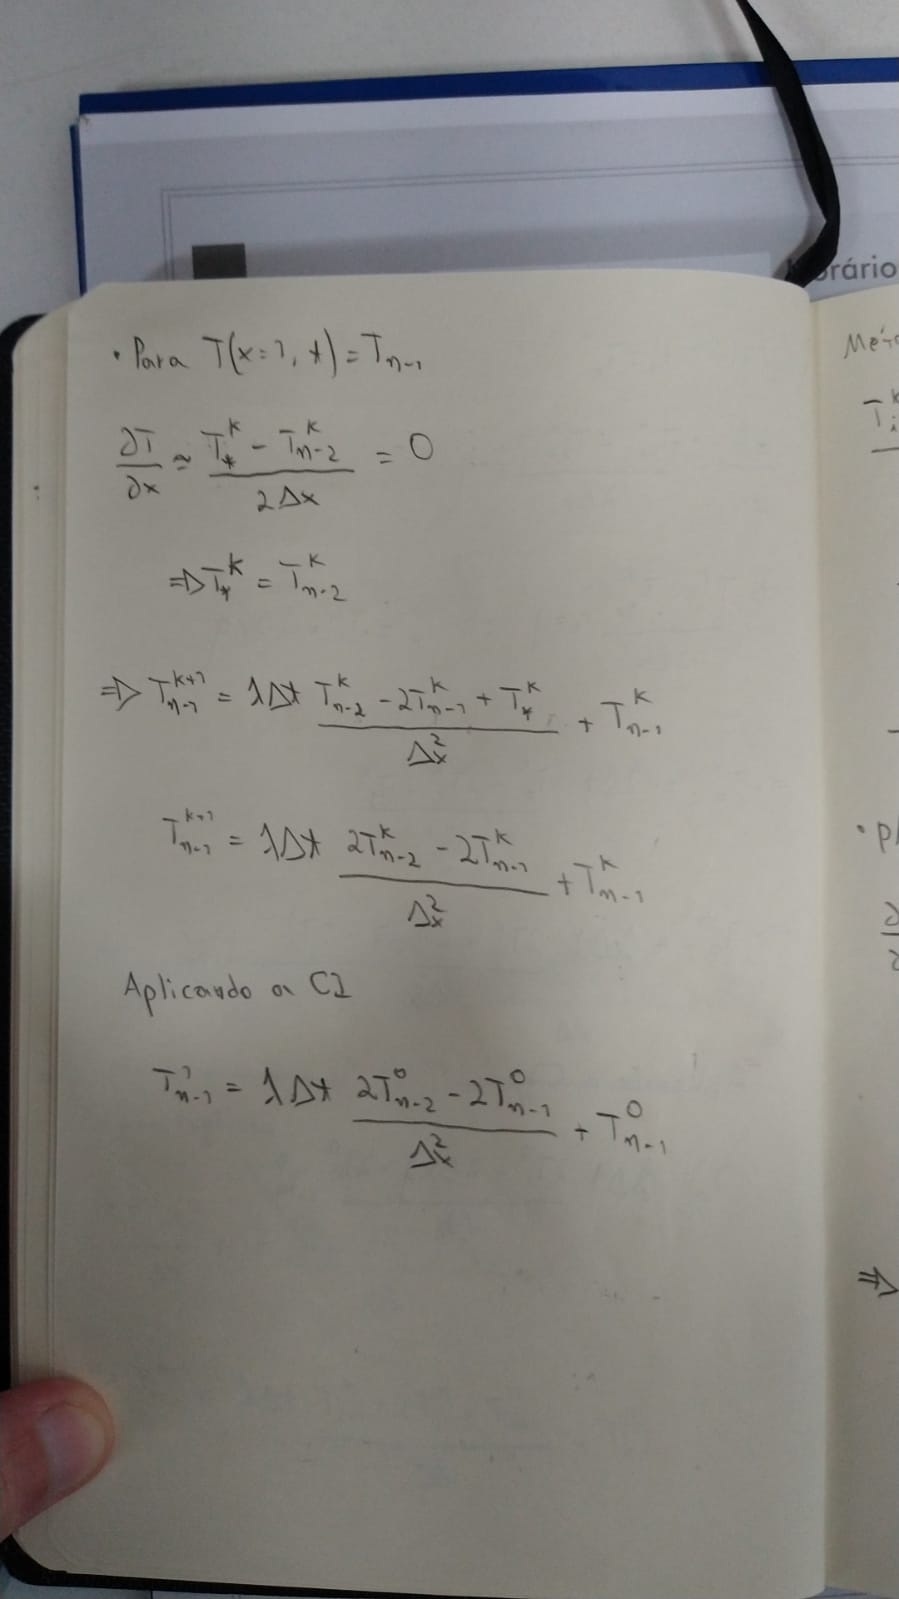 orário
• Para T(x=1, t) = T_{n-1}
∂T/∂x ≈ (T_*^k - T_{n-2}^k)/(2Δx) = 0
⇒ T_*^k = T_{n-2}^k
⇒ T_{n-1}^{k+1} = λΔt (T_{n-2}^k - 2T_{n-1}^k + T_*^k)/(Δx^2) + T_{n-1}^k
T_{n-1}^{k+1} = λΔt (2T_{n-2}^k - 2T_{n-1}^k)/(Δx^2) + T_{n-1}^k
Aplicando a CI
T_{n-1}^1 = λΔt (2T_{n-2}^0 - 2T_{n-1}^0)/(Δx^2) + T_{n-1}^0